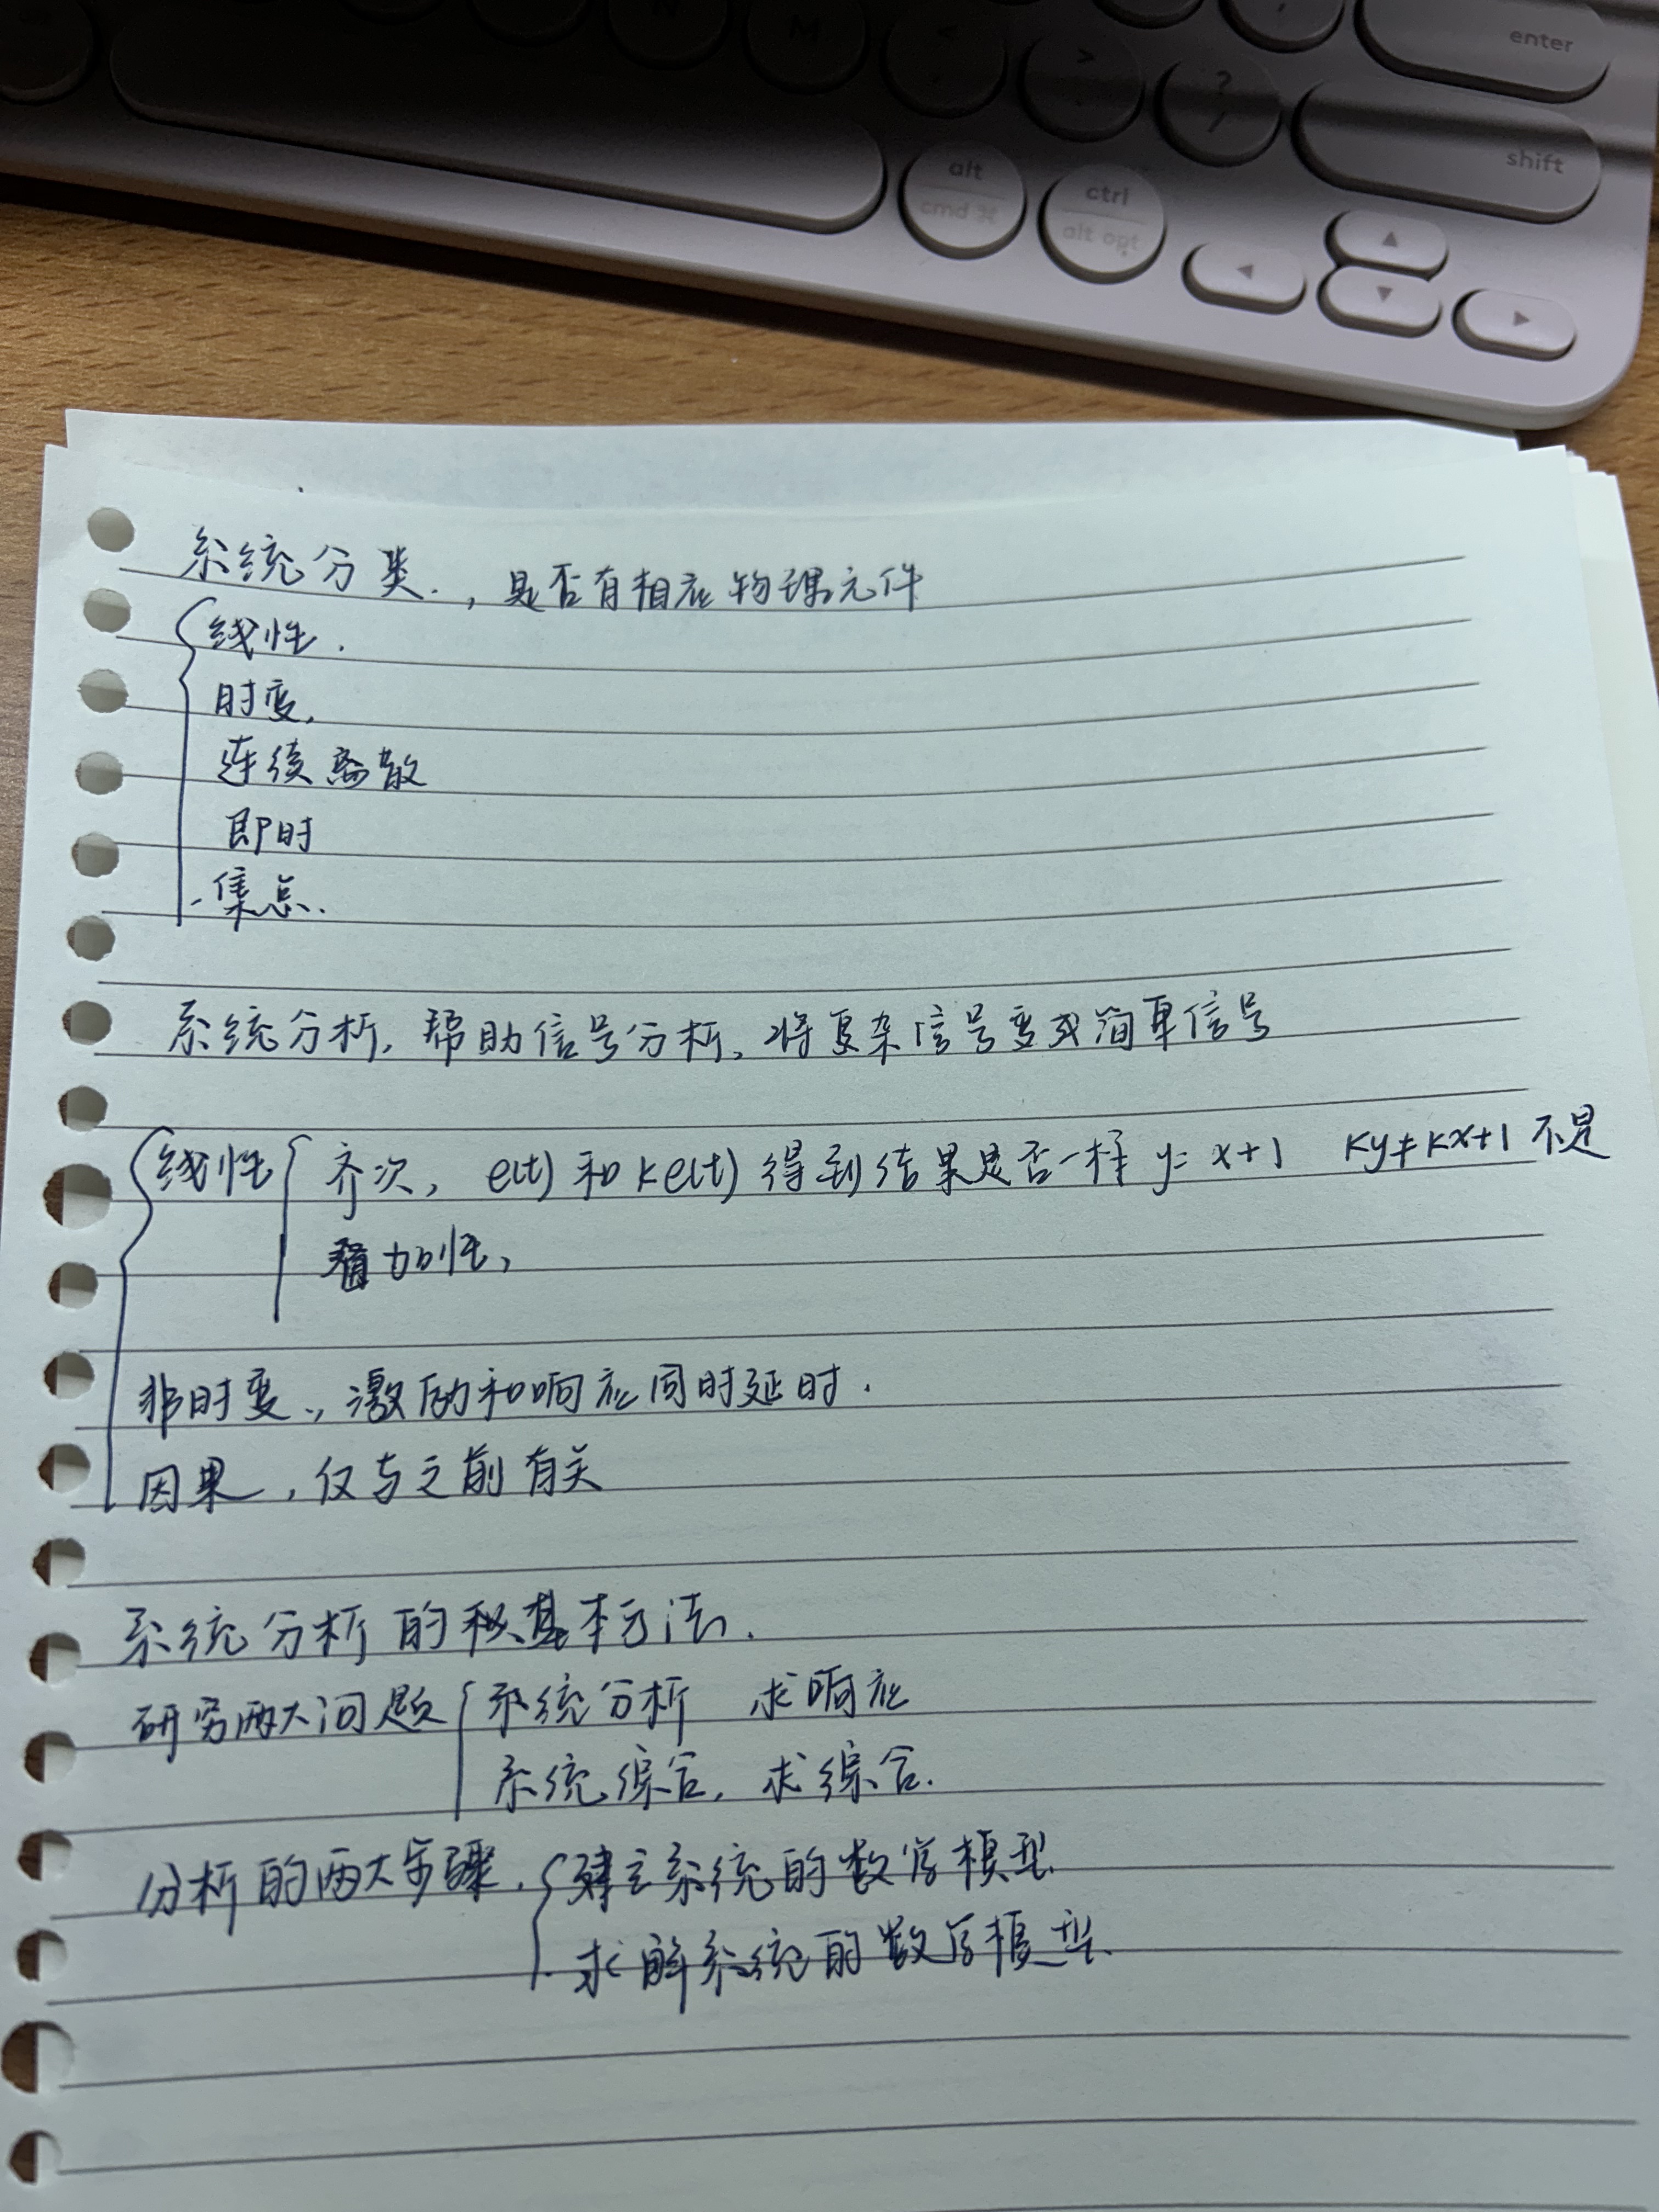 N M < >
enter
? /
shift
alt
cmd ⌘
ctrl
alt opt
◀ ▲ ▼ ▶
系统分类.,是否有相应物理元件
线性.
时变,
连续离散
即时
集总.
系统分析,帮助信号分析,将复杂信号变成简单信号
线性 齐次, e(t) 和 ke(t) 得到结果是否一样 y= x+1 ky≠kx+1 不是
叠加性,
非时变.,激励和响应同时延时.
因果,仅与之前有关
系统分析的基本方法.
研究两大问题 系统分析 求响应
系统综合,求综合.
分析的两大步骤. 建立系统的数学模型.
求解系统的数学模型.